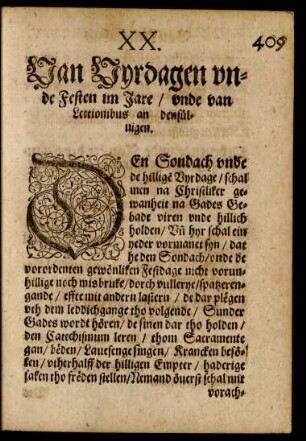 XX.
409
Van Vyrdagen vn-
de Festen im Jare / vnde van
Lectionibus an densül-
uigen.
DEn Sondach vnde
de hilligē Vyrdage / schal
men na Christliker ge-
wanheit na Gades Ge-
bade viren vnde hillich
holden / Vñ hyr schal ein
yeder vormanet syn / dat
he den Sondach / vnde de
vorordenten gewönliken Festdage nicht vorun-
hillige noch misbruke / dorch vullerye / spatzeren-
gande / effte mit andern lastern / de dar plegen
vth dem leddichgange tho volgende / Sunder
Gades wordt hören / de sinen dar tho holden /
den Catechismum leren / thom Sacramente
gan / bēden / Lauesenge singen / Krancken besö-
ken / vtherhalff der hilligen Empter / haderige
saken tho frēden stellen / Nemand öuerst schal mit
vorach-